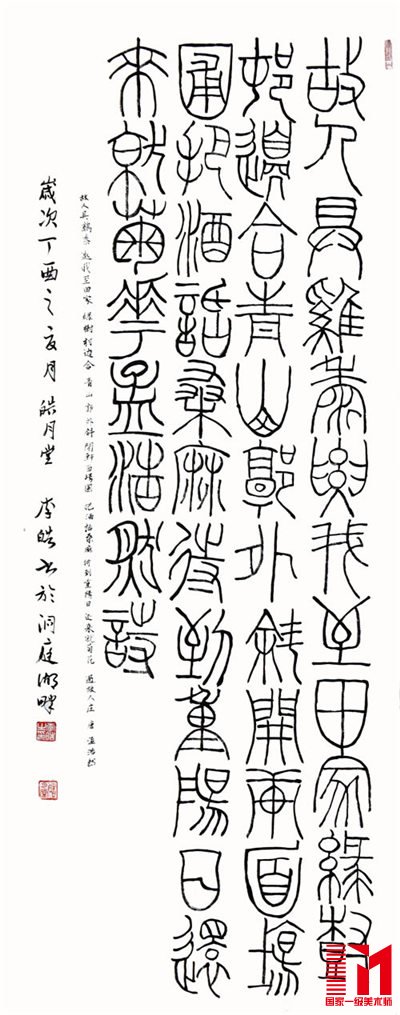 故人具雞黍邀我至田家綠樹
邨邊合青山郭外斜開軒面場
圃把酒話桑麻待到重陽日還
來就菊花孟浩然詩
故人具鷄黍 邀我至田家 緑樹村边合 青山郭外斜 開軒面場圃 把酒話桑麻 待到重陽日 还來就菊花 過故人庄 唐 孟浩然
歲次丁酉之夏月 皓月堂 李皓书於洞庭湖畔
国家一级美术师